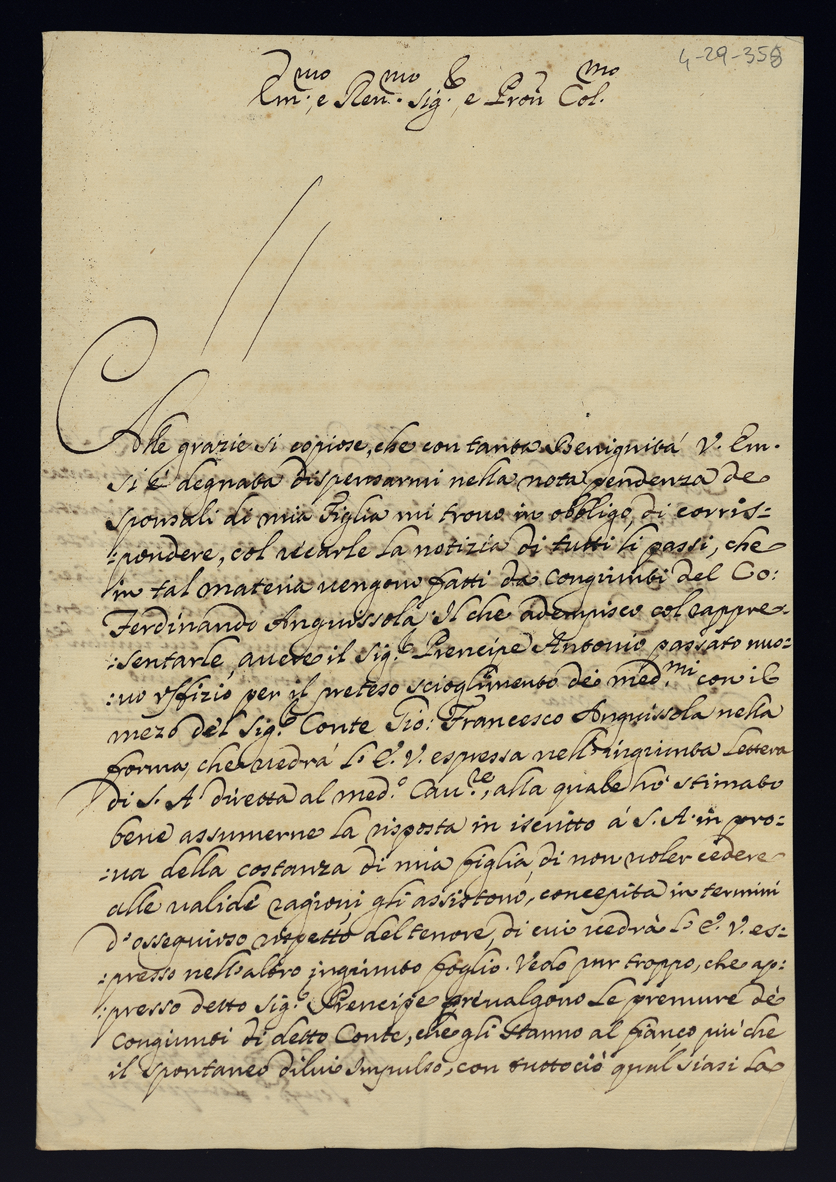 4-29-358
Em.mo e Ren.mo Sig.e, e Pron Col.mo
Alle grazie si copiose, che con tanta Benignità V. Em.
si è degnata dispensarmi nella nota pendenza de
sponsali di mia Figlia mi trovo in obbligo, di corris=
=pondere, col recarle la notizia di tutti li passi, che
in tal materia vengono fatti da congiunti del Co:
Ferdinando Anguissola. Il che adempisco col rappre=
=sentarle, avere il Sig.e Prencipe Antonio passato nuo=
=vo offizio per il preteso scioglimento dei med.mi con il
mezo del Sig.e Conte Gio: Francesco Anguissola nella
forma, che vedrà l'E. V. espressa nell'ingiunta Lettera
di S. A. diretta al med.o Cav.re, alla quale hò stimato
bene assumerne la risposta in iscritto à S. A. in pro=
=va della costanza di mia figlia di non voler cedere
alle valide ragioni gli assistono, concepita in termini
d'ossequioso rispetto del tenore, di cui vedrà l'E. V. es=
=presso nell'altro ingiunto foglio. Vedo pur troppo, che ap=
=presso detto Sig.e Prencipe prevalgono le premure de
congiunti di detto Conte, che gli stanno al fianco più che
il spontaneo di lui Impulso, con tuttociò qual siasi la